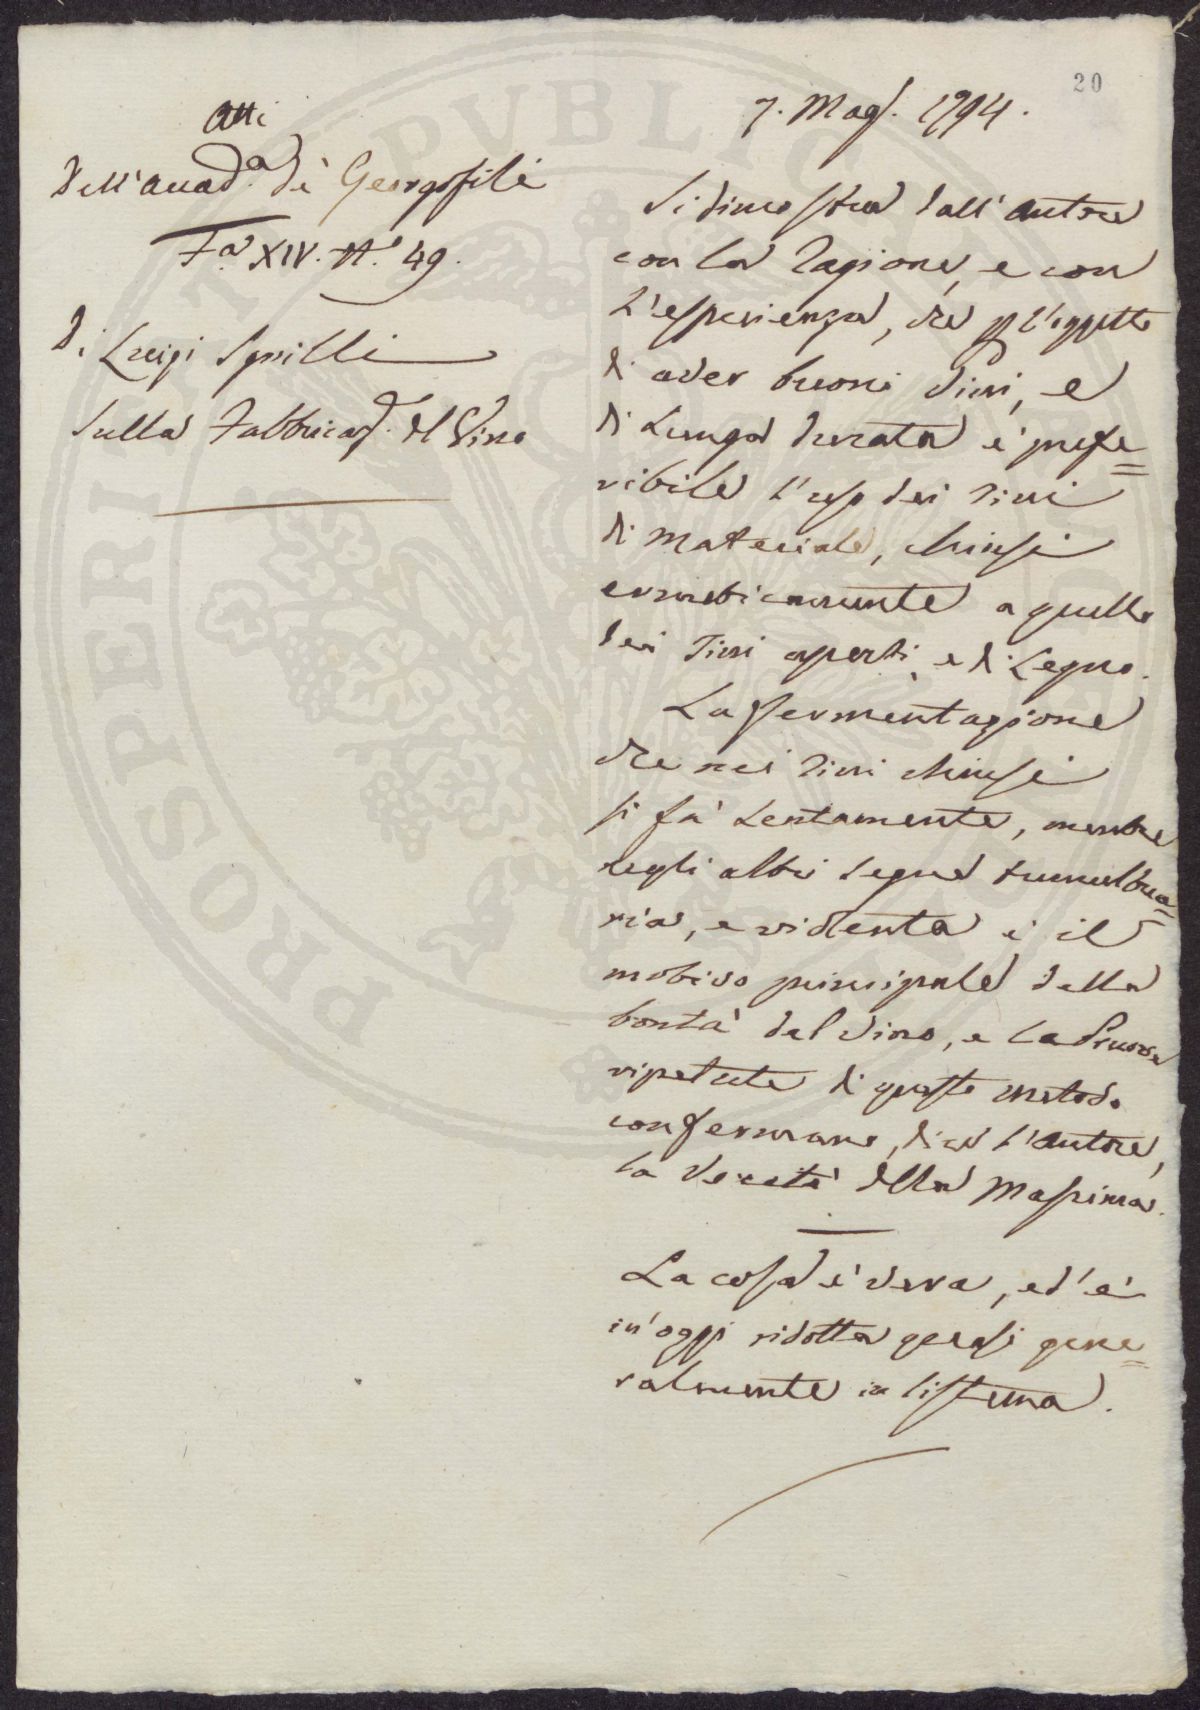 20
7. Magg. 1794.
Atti
Dell'Accad.a de' Georgofili
Fa. XIV. N.° 49.
di Luigi Sgrilli
Sulla Fabbricaz. del Vino
Si dimostra dall'Autore
con la Ragione, e con
l'esperienza, che p l'oggetto
di aver buoni Vini, e
di lunga durata è prefe=
ribile l'uso dei Tini
di Materiale, chiusi
ermeticamente a quello
dei Tini aperti, e di Legno.
La fermentazione
che nei Tini chiusi
si fà lentamente, mentre
negli altri segue tumultua=
ria, e violenta è il
motivo principale della
bontà del Vino, e la Pruove
ripetute di questo metodo
confermano, dice l'Autore,
la Verità della Massima.
La cosa è vera, ed'è
in'oggi ridotta quasi gene=
ralmente in sistema.
PVBLICAE
PROSPERITATI